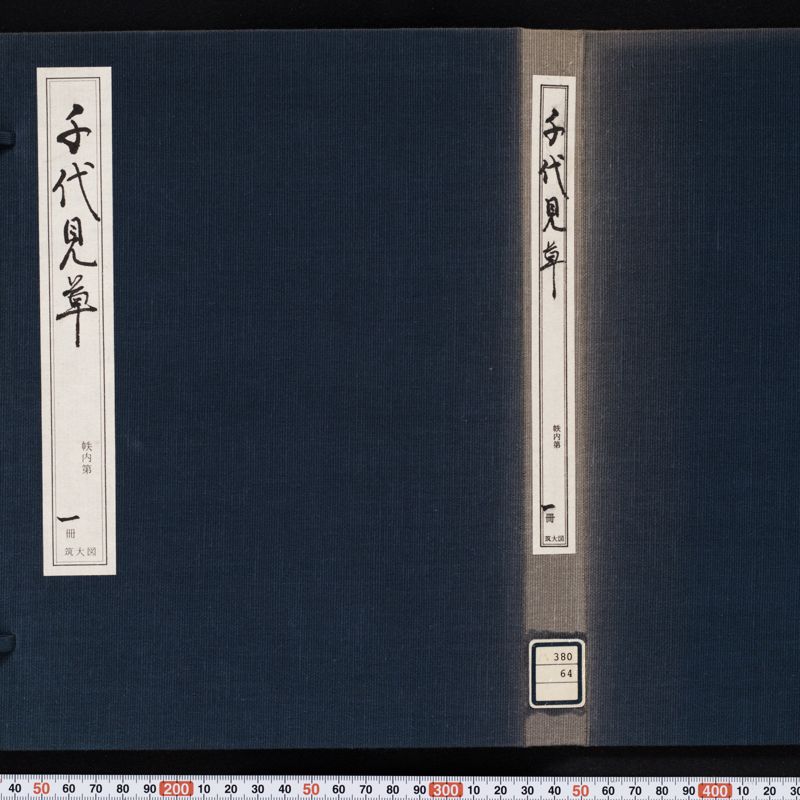 千代見草
帙内第
一
冊
筑大図
千代見草
帙内第
一
冊
筑大図
380
64
40 50 60 70 80 90 200 10 20 30 40 50 60 70 80 90 300 10 20 30 40 50 60 70 80 90 400 10 20 30